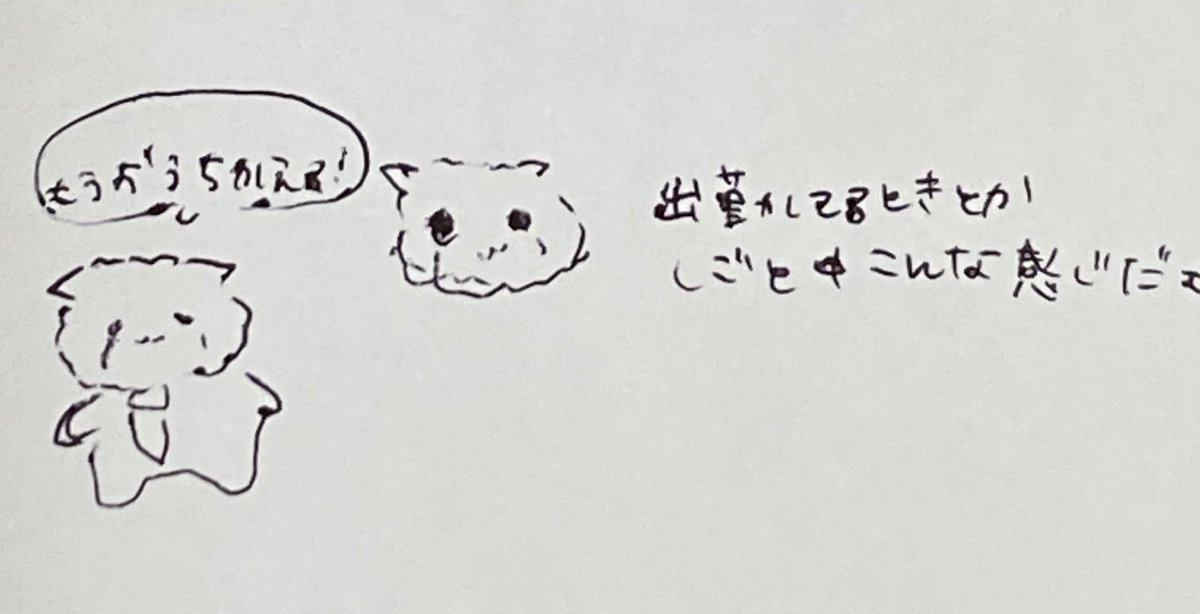 もうおうちかえる!
出勤してるときとか
しごと中こんな感じだよ